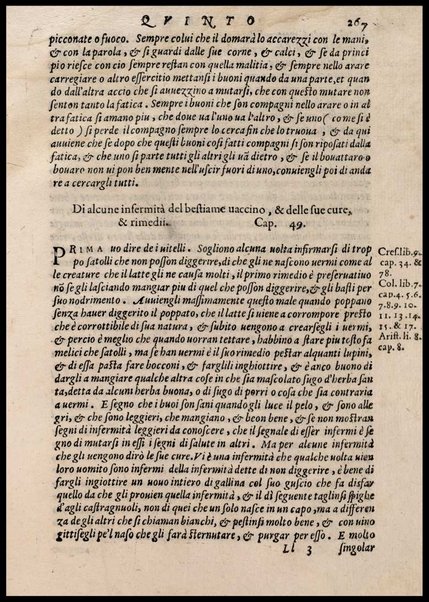 QVINTO 267
picconate o fuoco. Sempre colui che il domarà lo accarezzi con le mani,
& con la parola, & si guardi dalle sue corne, & calci, & se da princi
pio riesce con cio sempre restan con quella malitia, & sempre nello arare
carregiare o altro essercitio mettansi i buoni quando da una parte, et quan
do dall'altra accio che si auuezzino a mutarsi, che con questo mutare non
senton tanto la fatica. Sempre i buoi che son compagni nello arare o in al
tra fatica si amano piu, che doue ua l'uno ua l'altro, & se uno (come si è
detto) si perde il compagno sempre lo cerca fin che lo truoua, & da qui
auuiene che se dopo che questi buoni cosi fatti compagni si son riposati dalla
fatica, & che uno si parte tutti gli altri gli uã dietro, & se il bouattaro o
bouaro non ui pon ben mente nell'uscir fuori di uno, conuien gli poi di anda
re a cercargli tutti.
Di alcune infermità del bestiame uaccino, & delle sue cure,
& rimedii. Cap. 49.
PRIMA uo dire de i uitelli. Sogliono alcuna uolta infirmarsi di trop
po satolli che non posson diggerire, di che gli ne nascono uermi come al
le creature che il latte gli ne causa molti, il primo rimedio è preseruatiuo
nõ se gli lasciando mangiar piu di quel che posson diggerire, & gli basti per
suo nodrimento. Auuien gli massimamente questo male quando poppano
senza hauer diggerito il poppato, che il latte si uiene a corrompere presto
che è corrottibile di sua natura, & subito uengono a crearsegli i uermi,
& perciò è meglio che quando uorran tettare, habbino a stare piu tosto fa
melici che satolli, ma se han uermi è il suo rimedio pestar alquanti lupini,
& di essa pasta fare bocconi, & fargli li inghiottire, & è anco buono di
dargli a mangiare qualche altra cose in che sia mascolato sugo d'herba san
ta, detta da alcuni herba buona, o di sugo di porri o cosa che sia contraria
a uermi. E segno che i buoi son sani quando gli luce il pelo, & sono alle
gri, & che sono leggieri, che mangiano, & beon bene, & se non mostran
segni di infermità leggieri da conoscere, che il segnale di esser infermi è se
gno di mutarsi in essi i segni di salute in altri. Ma per alcune infermità
che gli uengon dirò le sue cure. Vi è una infermità che qualche uolta uien
loro uomito sono infermi della infermità dette di non diggerire, è bene di
fargli ingiottire un uouo intiero di gallina col suo guscio che fa disfar
quello da che gli prouien quella infermità, & il dì seguente taglinsi spighe
d'agli castragnuoli, non di quei che un solo nasce in un capo, ma a differen
za de gli altri che si chiaman bianchi, & pestinsi molto bene, & con uino
gittisegli pe'l naso che gli farà sternutare, & purgar per esso. E molto
Ll 3 singolar
Cres. lib. 9.
cap. 34. &
78.
Col. lib. 7.
cap. 4. 5. 6.
7. 8. 9. 10.
11. 13. 14.
15. & 17.
Arist. li. 8.
cap. 8.